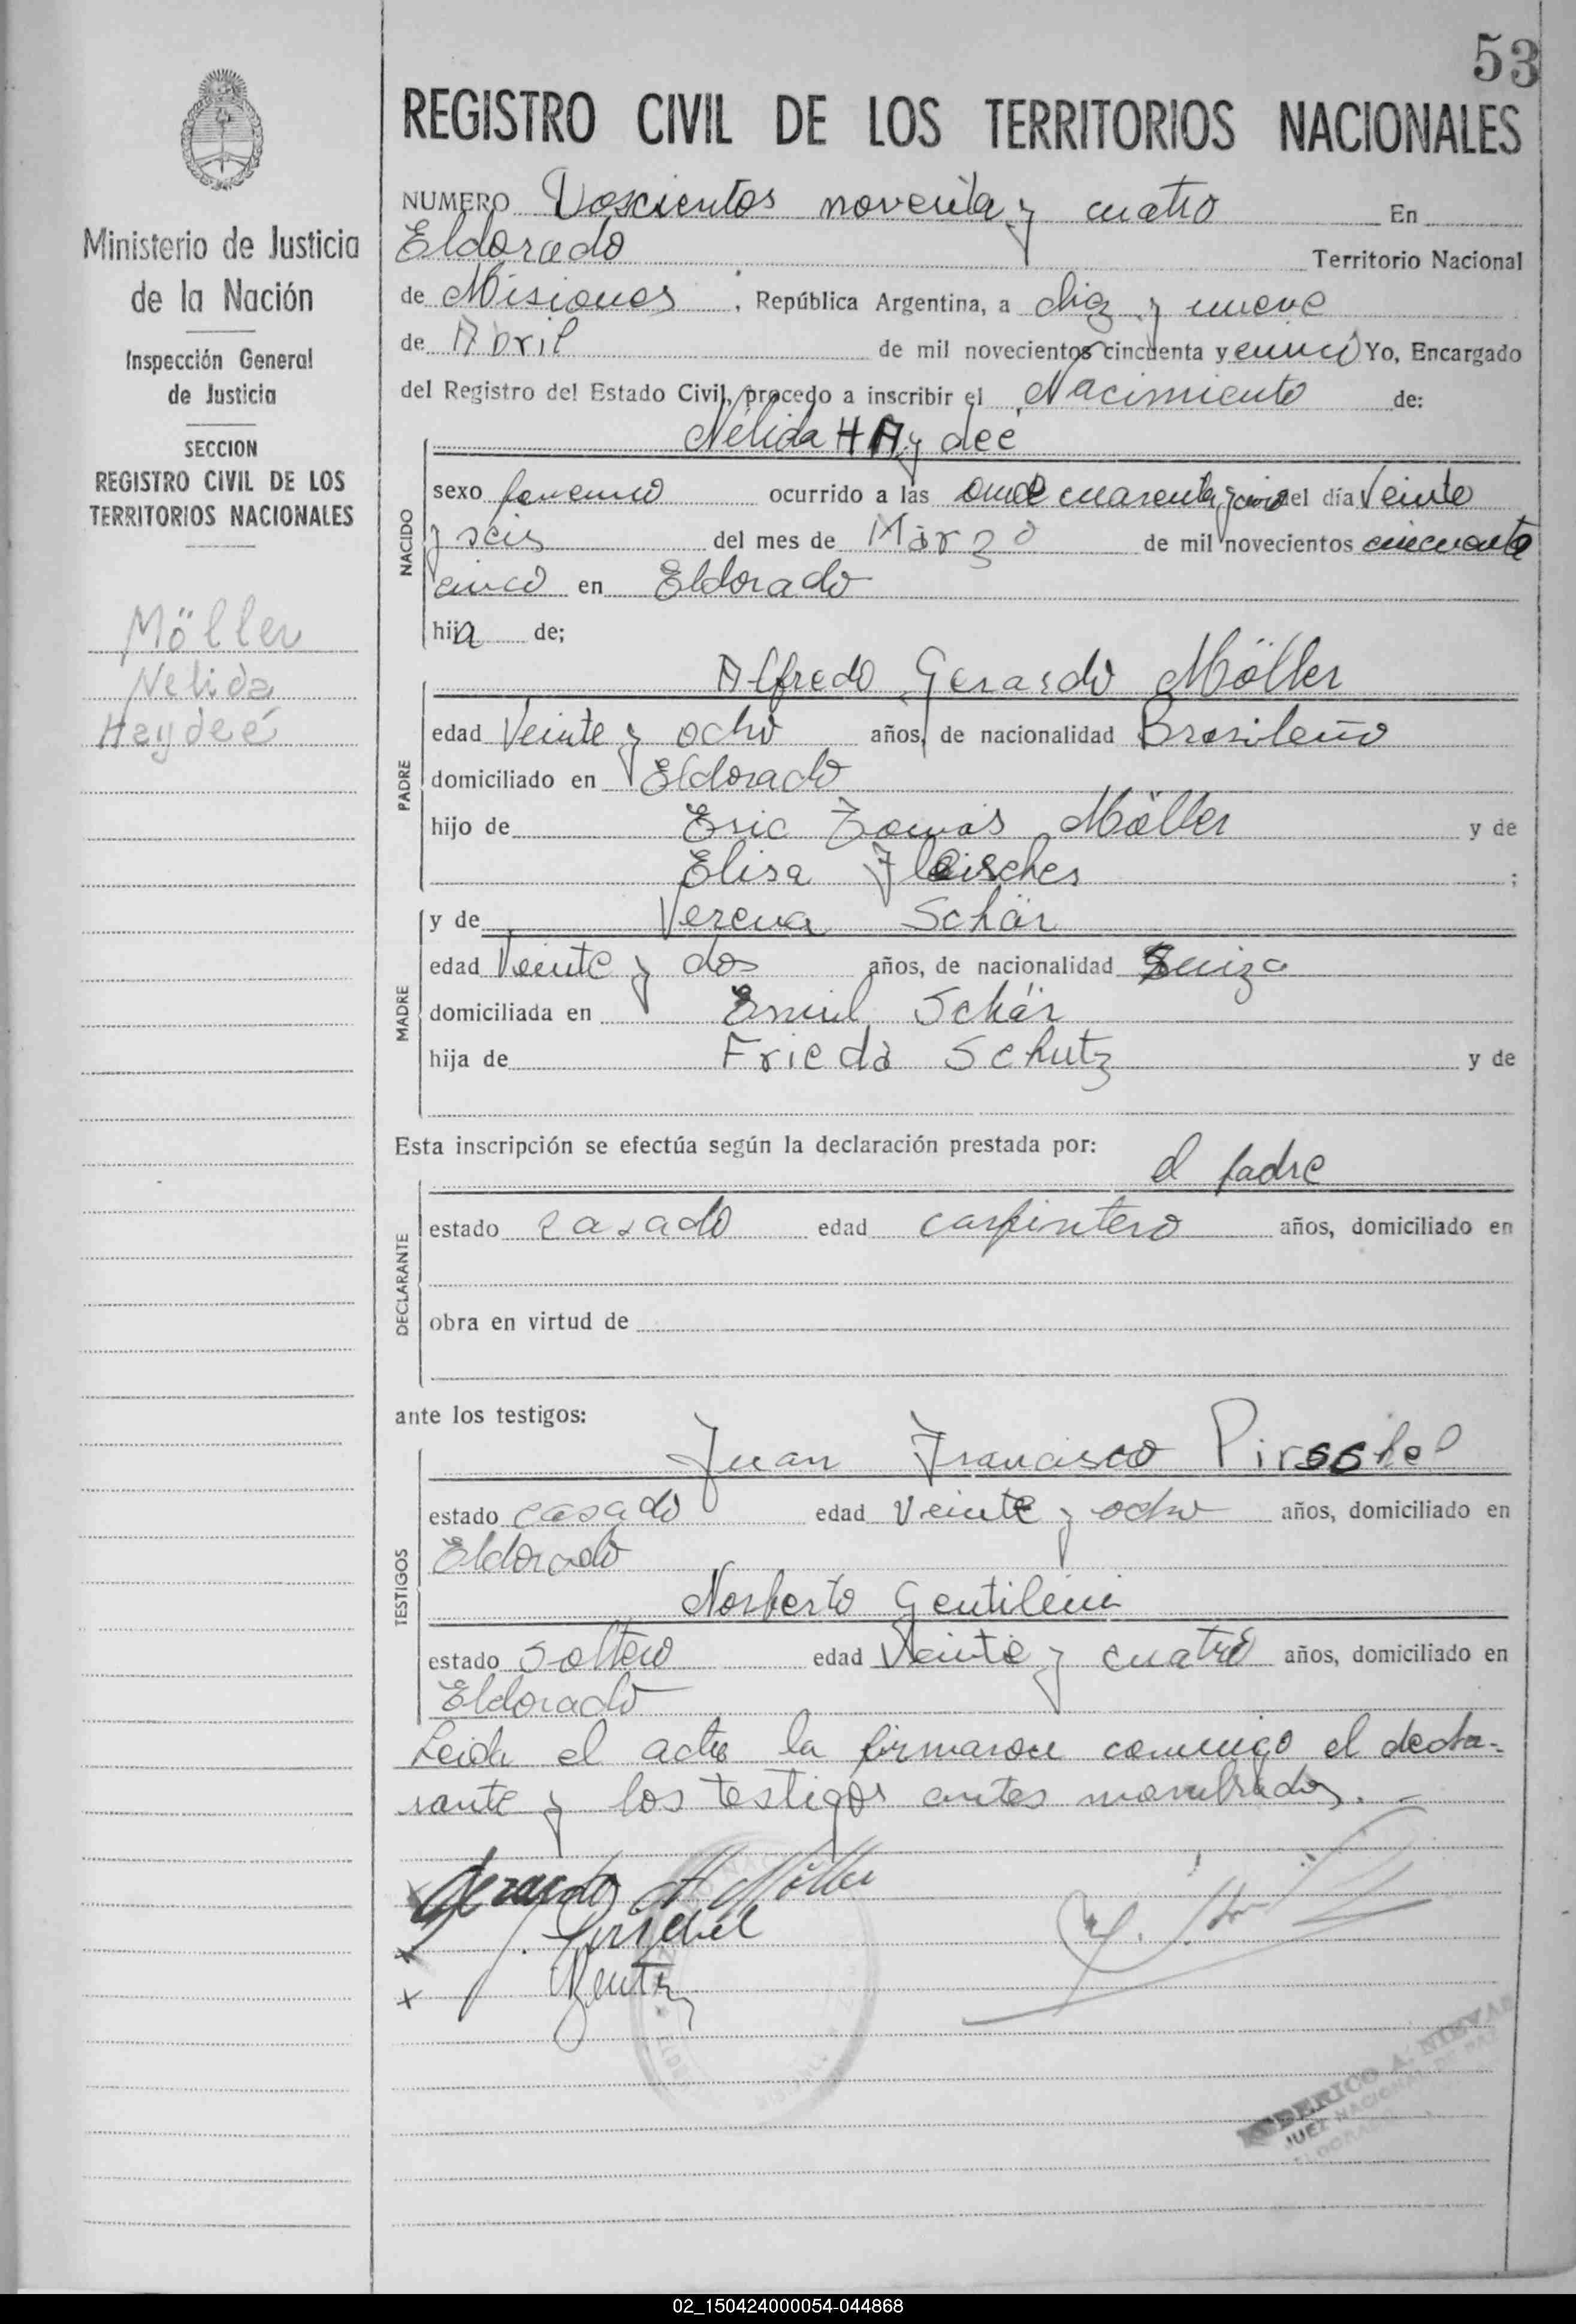 53
REGISTRO CIVIL DE LOS TERRITORIOS NACIONALES
Ministerio de Justicia
de la Nación
Inspección General
de Justicia
SECCION
REGISTRO CIVIL DE LOS
TERRITORIOS NACIONALES
Möller
Nelida
Haydeé
NUMERO Doscientos noventa y cuatro En
Eldorado Territorio Nacional
de Misiones, República Argentina, a diez y nueve
de Abril de mil novecientos cincuenta y cinco Yo, Encargado
del Registro del Estado Civil, procedo a inscribir el Nacimiento de:
NACIDO
Nélida HAydeé
sexo femenino ocurrido a las once cuarenta y cinco del día Veinte
y seis del mes de Marzo de mil novecientos cincuenta
cinco en Eldorado
hija de;
PADRE
Alfredo Gerardo Möller
edad Veinte y ocho años, de nacionalidad Brasileño
domiciliado en Eldorado
hijo de Eric Tomás Möller y de
Elisa Fleisches ;
MADRE
y de Verena Schär
edad Veinte y dos años, de nacionalidad Suiza
domiciliada en Emil Schär
hija de Frieda Schutz y de
Esta inscripción se efectúa según la declaración prestada por:
DECLARANTE
el padre
estado casado edad carpintero años, domiciliado en
obra en virtud de
ante los testigos:
TESTIGOS
Juan Francisco Pirsshel
estado casado edad Veinte y ocho años, domiciliado en
Eldorado
Norberto Gentilini
estado soltero edad Veinte y cuatro años, domiciliado en
Eldorado
Leida el acta la firmaron conmigo el decla-
rante y los testigos antes nombrados.-
Gerardo A Möller
JUEZ NACIONAL DE PAZ
02_150424000054-044868